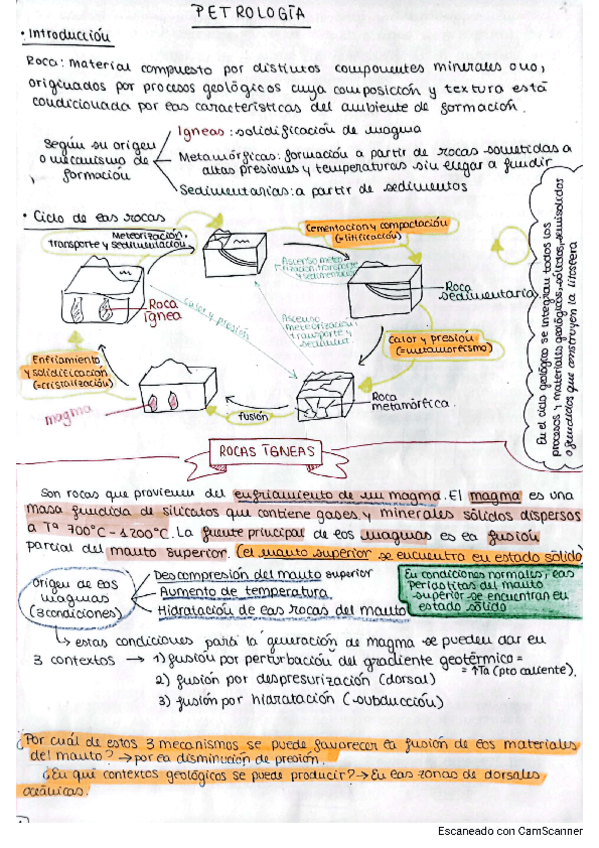 PETROLOGÍA
• Introducción
Roca: material compuesto por distintos componentes minerales o no,
originados por procesos geológicos cuya composición y textura está
condicionada por las características del ambiente de formación.
Según su origen
o mecanismo de
formación
Ígneas: solidificación de magma
Metamórficas: formación a partir de rocas sometidas a
altas presiones y temperaturas sin llegar a fundir
Sedimentarias: a partir de sedimentos
• Ciclo de las rocas
Meteorización,
transporte y sedimentación
Cementación y compactación
(=litificación)
Ascenso meteo
rización, transporte
y sedimentación
Roca
sedimentaria
Roca
ígnea
calor y presión
Ascenso
Meteorización
transporte y
sediment
Calor y presión
(=metamorfismo)
Enfriamiento
y solidificación
(=cristalización)
magma
fusión
Roca
metamórfica.
En el ciclo geológico se integran todos los
procesos y materiales geológicos, sólidos, semisólidos
o fundidos que construyen la litosfera
ROCAS ÍGNEAS
Son rocas que provienen del enfriamiento de un magma. El magma es una
masa fundida de silicatos que contiene gases y minerales sólidos dispersos
a Tª 700°C - 1200°C. La fuente principal de los magmas es la fusión
parcial del manto superior. (el manto superior se encuentra en estado sólido)
Origen de los
magmas
(3 condiciones)
Descompresión del manto superior
Aumento de temperatura.
Hidratación de las rocas del manto
En condiciones normales, las
peridotitas del manto
superior se encuentran en
estado sólido
↳ estas condiciones para la generación de magma se pueden dar en
3 contextos → 1) fusión por perturbación del gradiente geotérmico =
= ↑Ta (pto caliente).
2) fusión por despresurización (dorsal)
3) fusión por hidratación (subducción)
¿Por cuál de estos 3 mecanismos se puede favorecer la fusión de los materiales
del manto? → por la disminución de presión.
¿En qué contextos geológicos se puede producir? → En las zonas de dorsales
oceánicas.
Escaneado con CamScanner